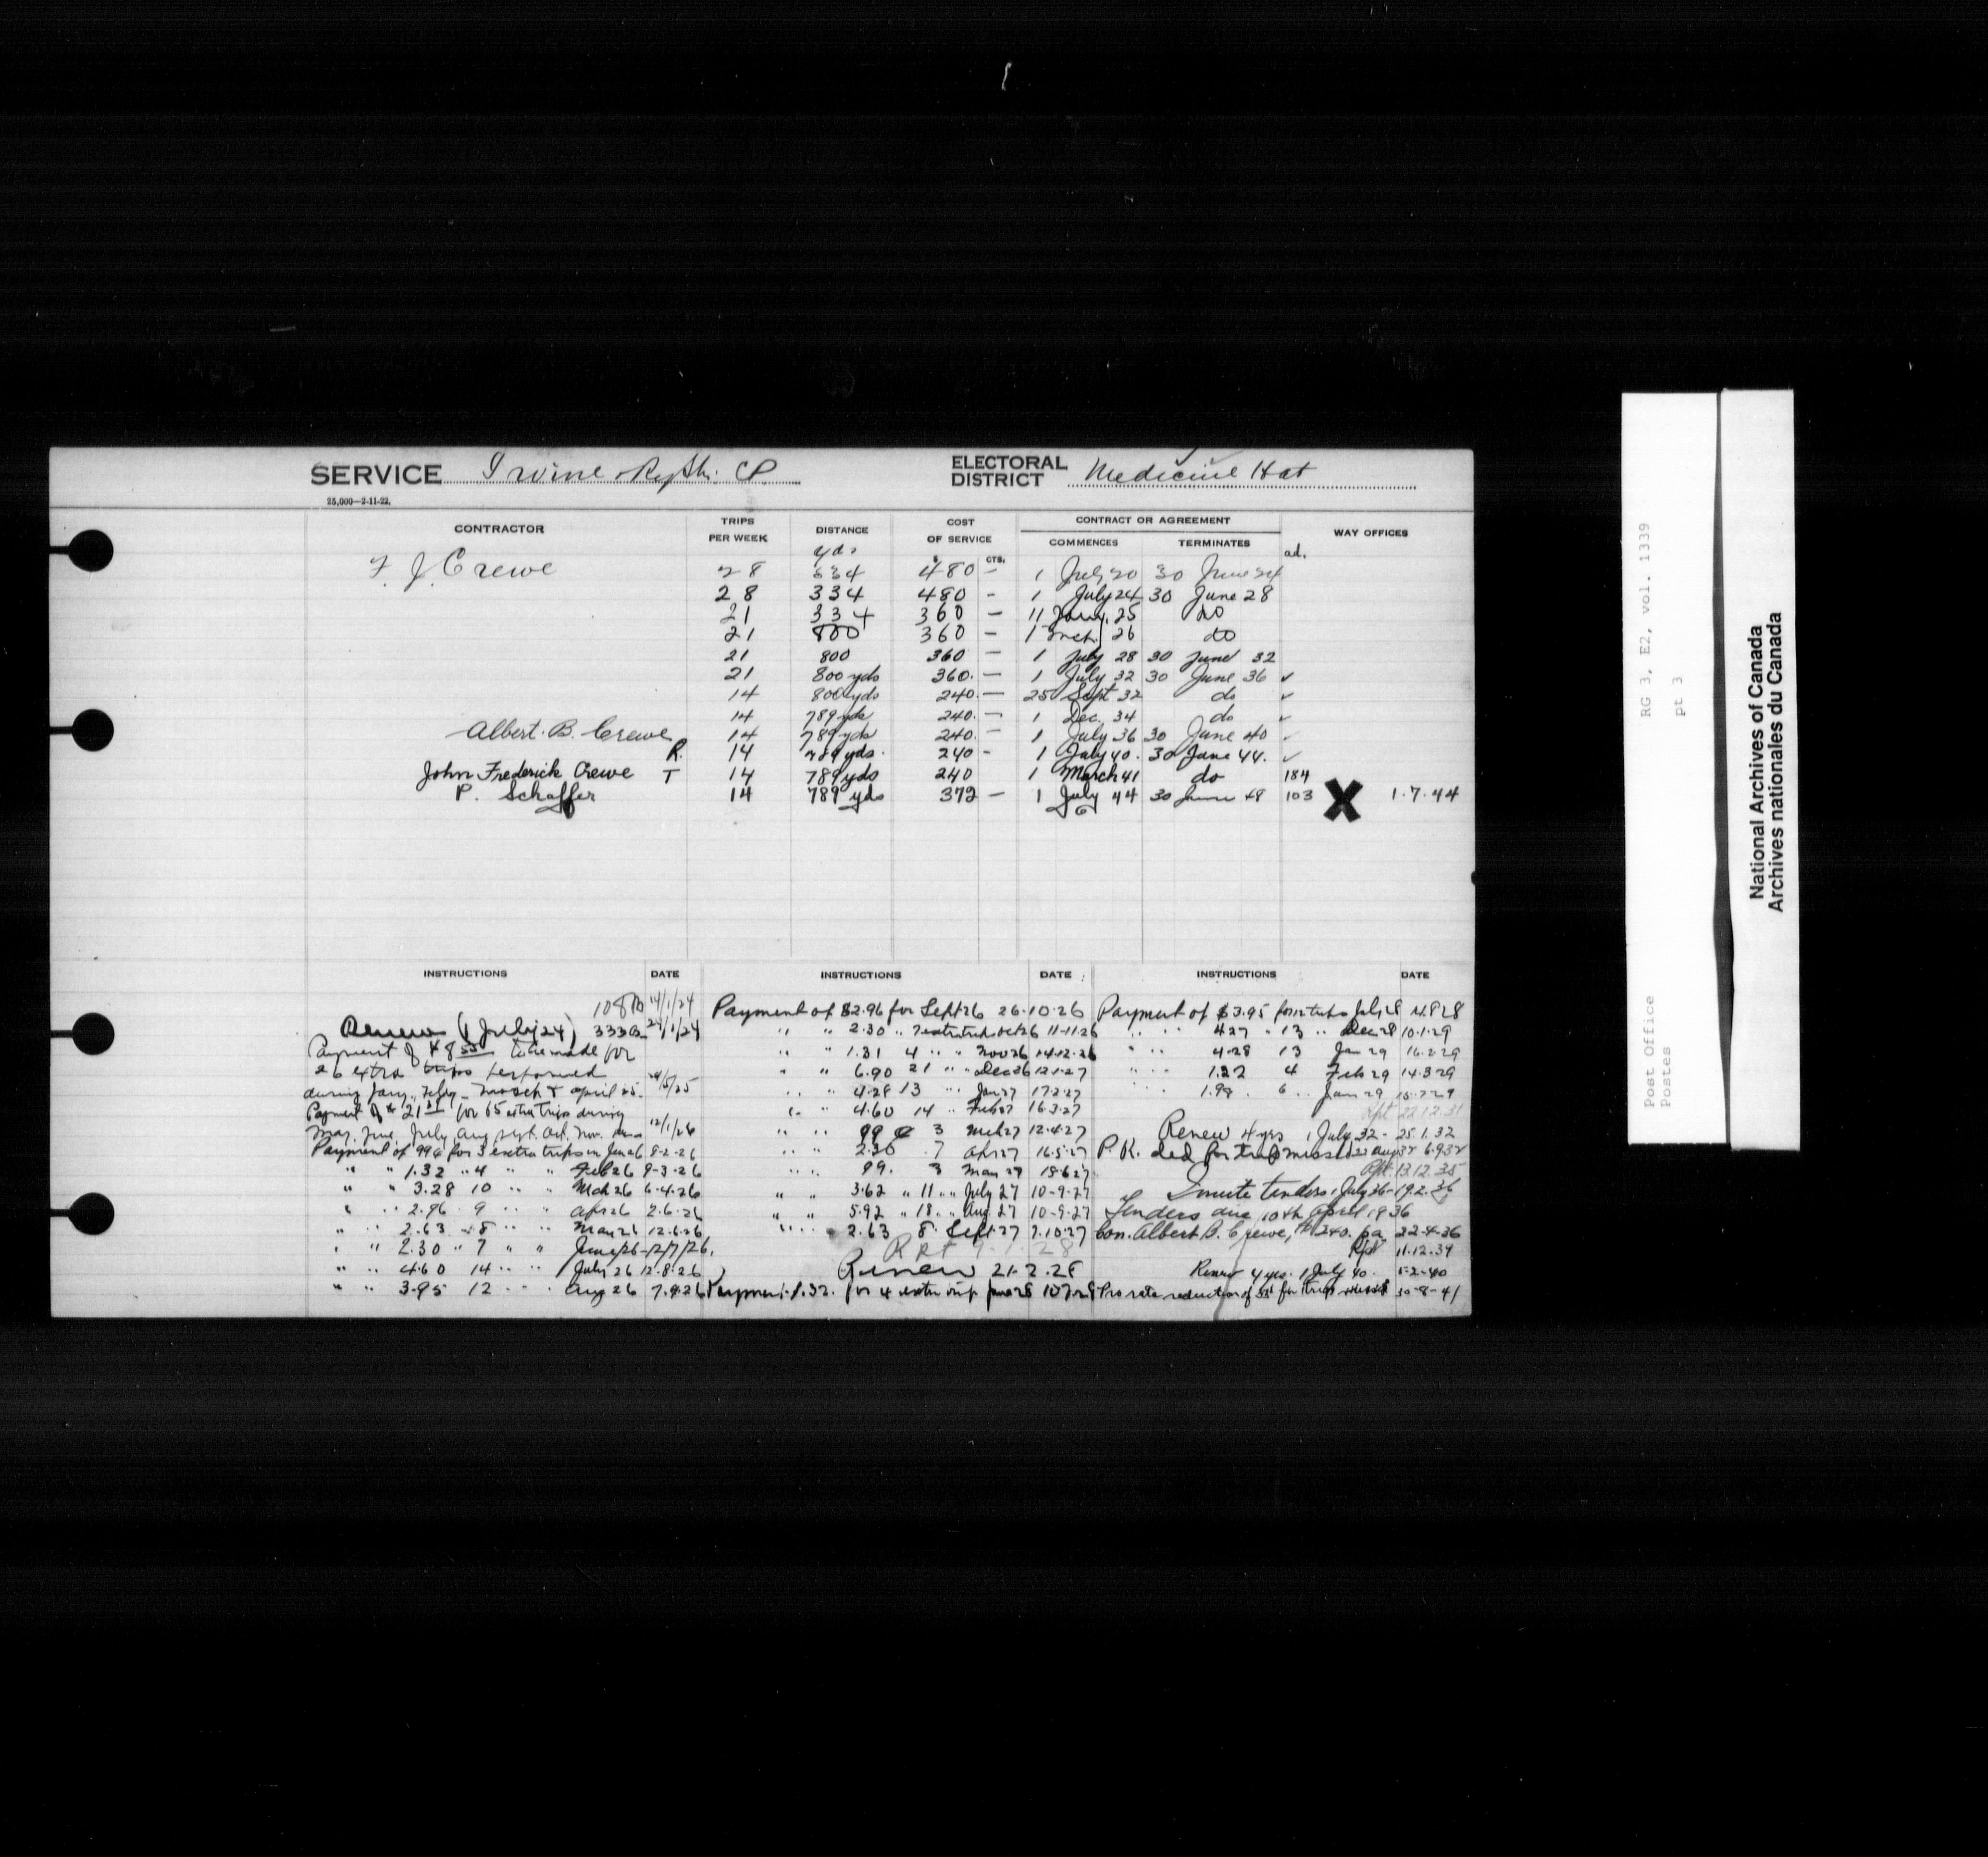 SERVICE Irvine Ry Stn. CP ELECTORAL DISTRICT Medicine Hat
25,000—2-11-22.
CONTRACTOR TRIPS PER WEEK DISTANCE COST OF SERVICE CONTRACT OR AGREEMENT WAY OFFICES
COMMENCES TERMINATES
yds $ CTS. ad.
F. J. Crewe 28 334 480 - 1 July 20 30 June 24
28 334 480 - 1 July 24 30 June 28
21 334 360 - 11 Jany. 25 do
21 800 360 - 1 Mch. 26 do
21 800 360 - 1 July 28 30 June 32
21 800 yds 360. - 1 July 32 30 June 36 ✓
14 800 yds 240. - 25 Sept 32 do ✓
14 789 yds 240. - 1 Dec. 34 do ✓
Albert. B. Crewe 14 789 yds 240. - 1 July 36 30 June 40 ✓
R. 14 789 yds. 240 - 1 July 40. 30 June 44. ✓
John Frederick Crewe T 14 789 yds 240 1 March 41 do 184
P. Schaffer 14 789 yds 372 - 1 July 44 30 June 48 103 X 1.7.44
INSTRUCTIONS DATE
108 14/1/24
Renew (1 July 24) 333B 24/1/24
Payment of $8.55 to be made for
26 extra trips performed
during Jany., Feby., March & April 25. /5/25
Payment of $21 for 65 extra trips during
May, June, July, Aug, Sept. Oct. Nov. 12/1/26
Payment of 99¢ for 3 extra trips in Jan 26 8-2-26
" " 1.32 " 4 " " Feb 26 8-3-26
" " 3.28 10 " " Mch 26 6-4-26
" " 2.96 9 " " Apr 26 2-6-26
" " 2.63 8 " " May 26 12-6-26
" " 2.30 " 7 " " June/26 12/7/26.
" " 4.60 14 " " July 26 12-8-26
" " 3.95 12 " " Aug 26 7.9.26
INSTRUCTIONS DATE
Payment of $2.96 for Sept 26 26.10.26
" " 2.30 " 7 extra trips Oct 26 11-11-26
" " 1.31 4 " " Nov 26 14.12.26
" " 6.90 21 " " Dec 26 12.1.27
" " 4.28 13 " Jan 27 17.2.27
" " 4.60 14 " Feb 27 16.3.27
" " 99 ¢ 3 Mch 27 12.4.27
" " 2.30 7 Apr 27 16.5.27
" " 99. 3 May 27 18.6.27
" " 3.62 " 11 " " July 27 10-9-27
" " 5.92 " 18 " Aug. 27 10-9-27
" " 2.63 8 Sept 27 7.10.27
Rpt 9.1.28
Renew 21.2.28
Payment 1.32. for 4 extra trips June 28
INSTRUCTIONS DATE
Payment of $3.95 for 12 trips July 28
" " 4.27 " 13 " Dec 28 10.1.29
" " 4.28 13 Jan 29 16.2.29
" " 1.32 4 Feb 29 14.3.29
" " 1.98 6 " June 29
Rpt 22.12.31
Renew 4 yrs 1 July 32 - 25.1.32
P.K. ded for trip missed 22 Aug 32 6.9.32
Rpt. 13.12.35
Invite tenders 1 July 36 - 19.2.36
Tenders due 10th April 1936
Con. Albert B. Crewe, $240. pa 22-4-36
Rpt 11.12.39
Renew 4 yrs. 1 July 40. 5-2-40
Pro rata reduction of 33¢ for trip missed 30-8-41
RG 3, E2, vol. 1339
pt 3
Post Office
Postes
National Archives of Canada
Archives nationales du Canada